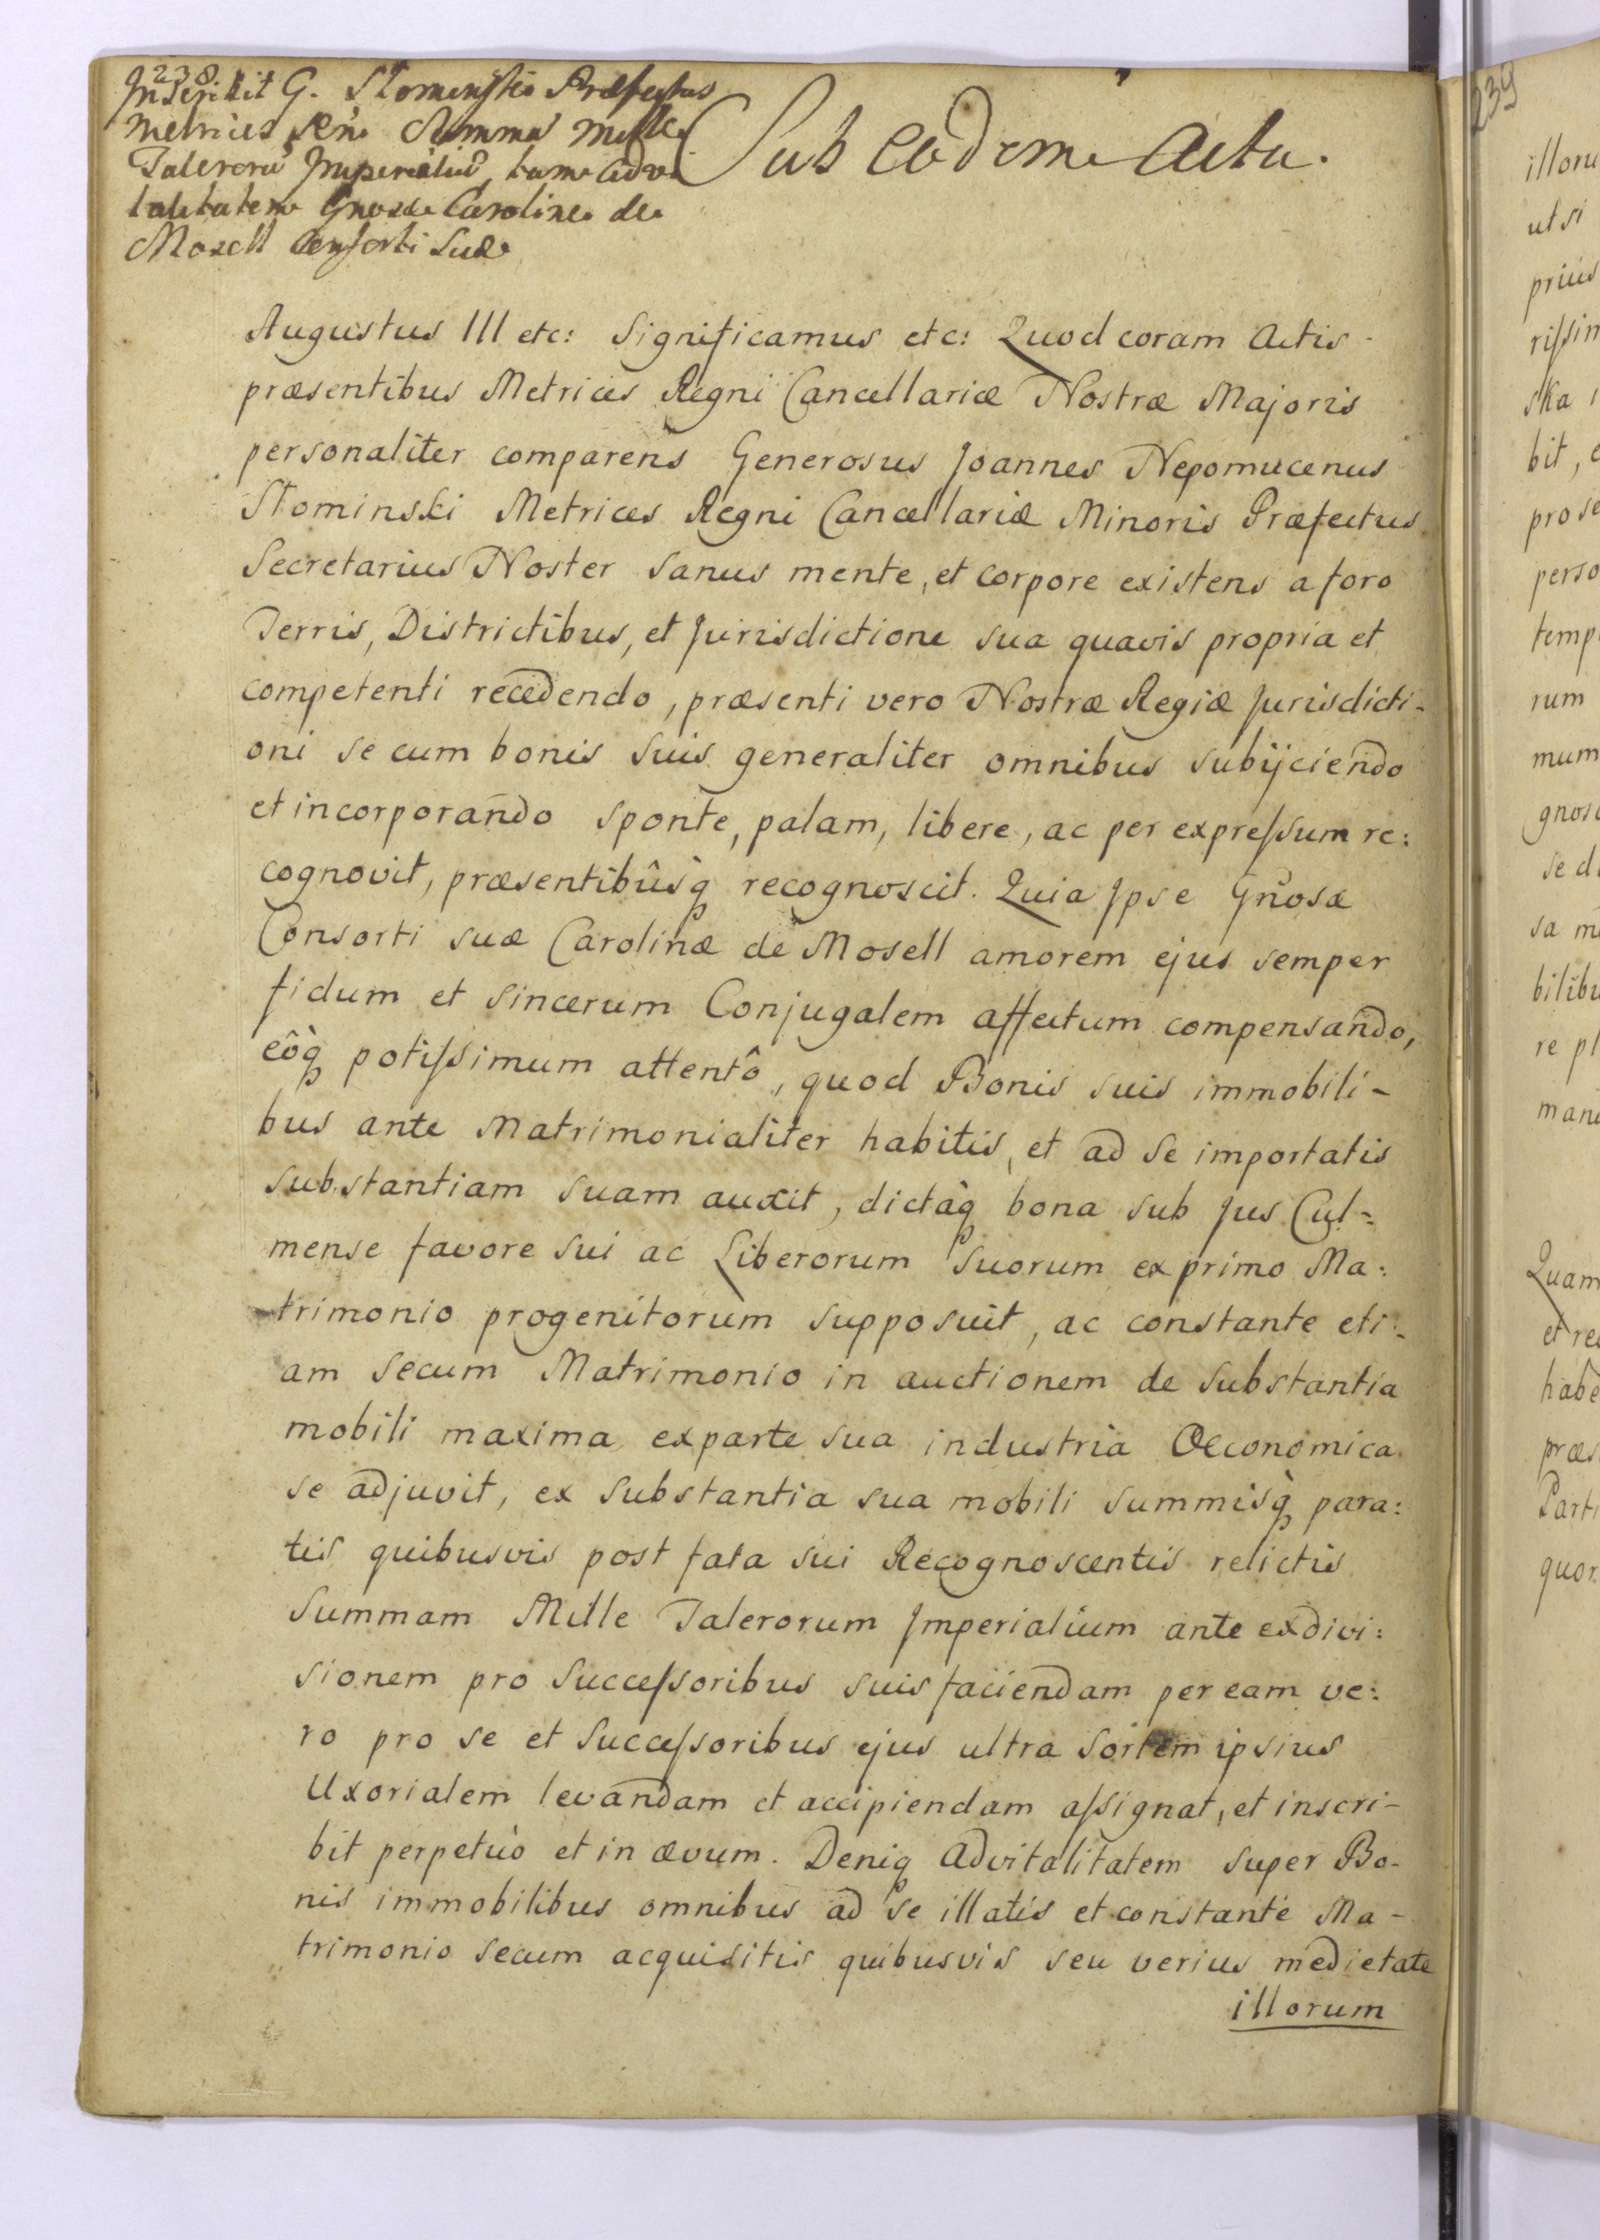 238.
Inscribit G. Słominski Præfectus
Metrices Summa Mille
Talerorū Imperialiū, tum advi
talitatem Gnosæ Caroline de
Mosell Consorti Suæ
Sub eodem Actu.
Augustus III etc: Significamus etc: Quod coram Actis
præsentibus Metrices Regni Cancellariæ Nostræ Majoris
personaliter comparens Generosus Joannes Nepomucenus
Słominski Metrices Regni Cancellariæ Minoris Præfectus
Secretarius Noster sanus mente, et corpore existens a foro
Terris, Districtibus, et Jurisdictione sua quavis propria et
competenti recedendo, præsenti vero Nostræ Regiæ Jurisdicti-
oni se cum bonis suis generaliter omnibus subijciendo
et incorporando sponte, palam, libere, ac per expressum re:
cognovit, præsentibûsq̀ recognoscit. Quia Ipse Gnosæ
Consorti suæ Carolinæ de Mosell amorem ejus semper
fidum et sincerum Conjugalem affectum compensando,
eôq̀ potissimum attentô, quod Bonis suis immobili-
bus ante Matrimonialiter habitis, et ad se importatis
substantiam suam auxit, dictàq bona sub Jus Cul-
mense favore sui ac Liberorum Suorum ex primo Ma:
trimonio progenitorum supposuit, ac constante eti:
am secum Matrimonio in auctionem de substantia
mobili maxima ex parte sua industria Œconomica
se adjuvit, ex substantia sua mobili summisq̀ para:
tis quibusvis post fata sui Recognoscentis relictis
Summam Mille Talerorum Imperialium ante exdivi:
sionem pro Successoribus suis faciendam per eam ve:
ro pro se et Successoribus ejus ultra sortem ipsius
Uxorialem levandam et accipiendam assignat, et inscri-
bit perpetuò et in ævum. Deniq Advitalitatem super Bo-
nis immobilibus omnibus ad se illatis et constante Ma-
trimonio secum acquisitis quibusvis seu verius medietate
illorum
239
illoru
ut si
prius
rissim
ska i
bit, e
pro se
perso
temp
rum
mum
gnosc
se d
sa m
bilibu
re pl
man
Quam
et re
habe
præs
Parti
quor